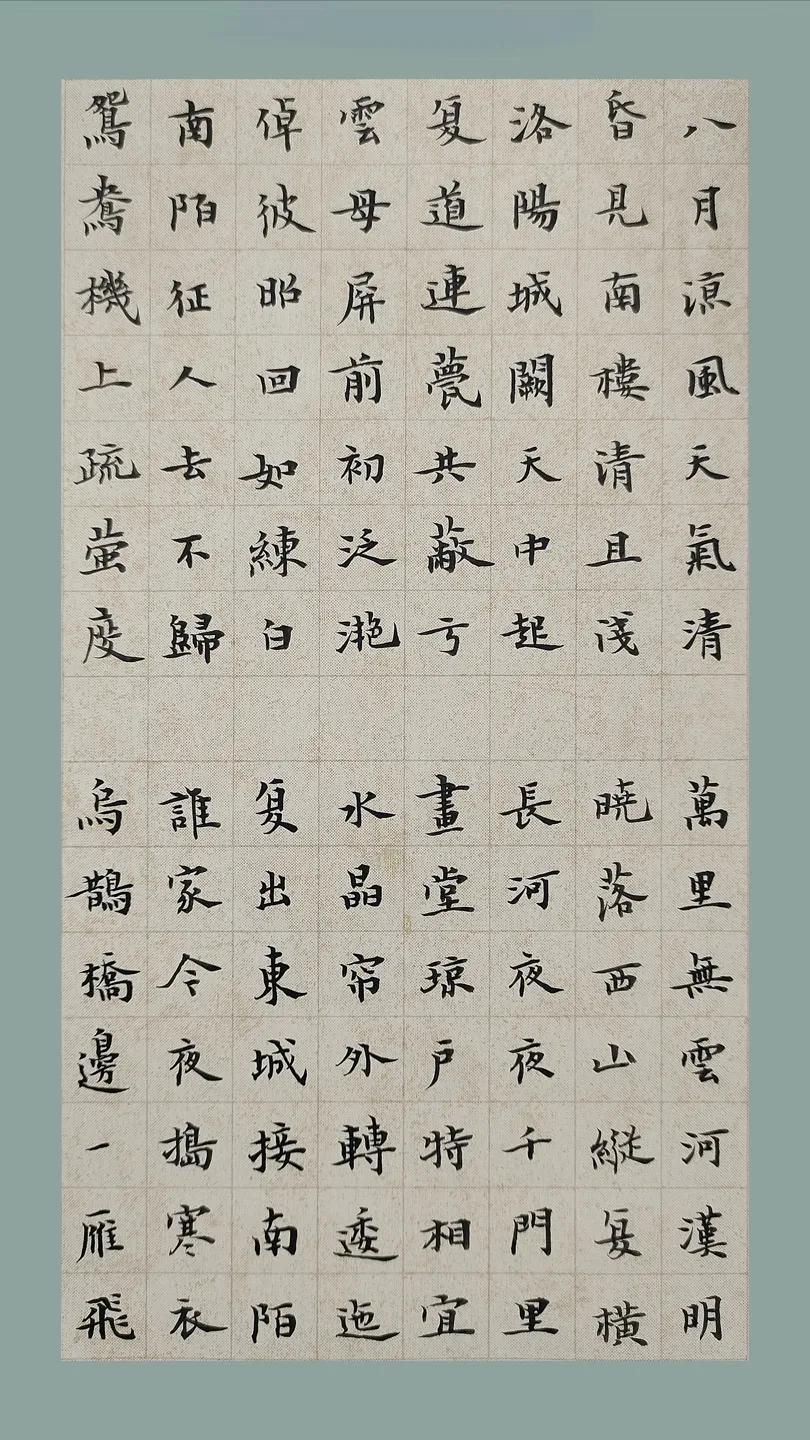 八月涼風天氣清
萬里無雲河漢明
昏見南樓清且淺
曉落西山縱复橫
洛陽城闕天中起
長河夜夜千門里
复道連甍共蔽亏
畫堂琼户特相宜
雲母屏前初泛滟
水晶帘外轉逶迤
倬彼昭回如練白
复出東城接南陌
南陌征人去不歸
誰家今夜搗寒衣
鴛鴦機上疏萤度
烏鵲橋邊一雁飛